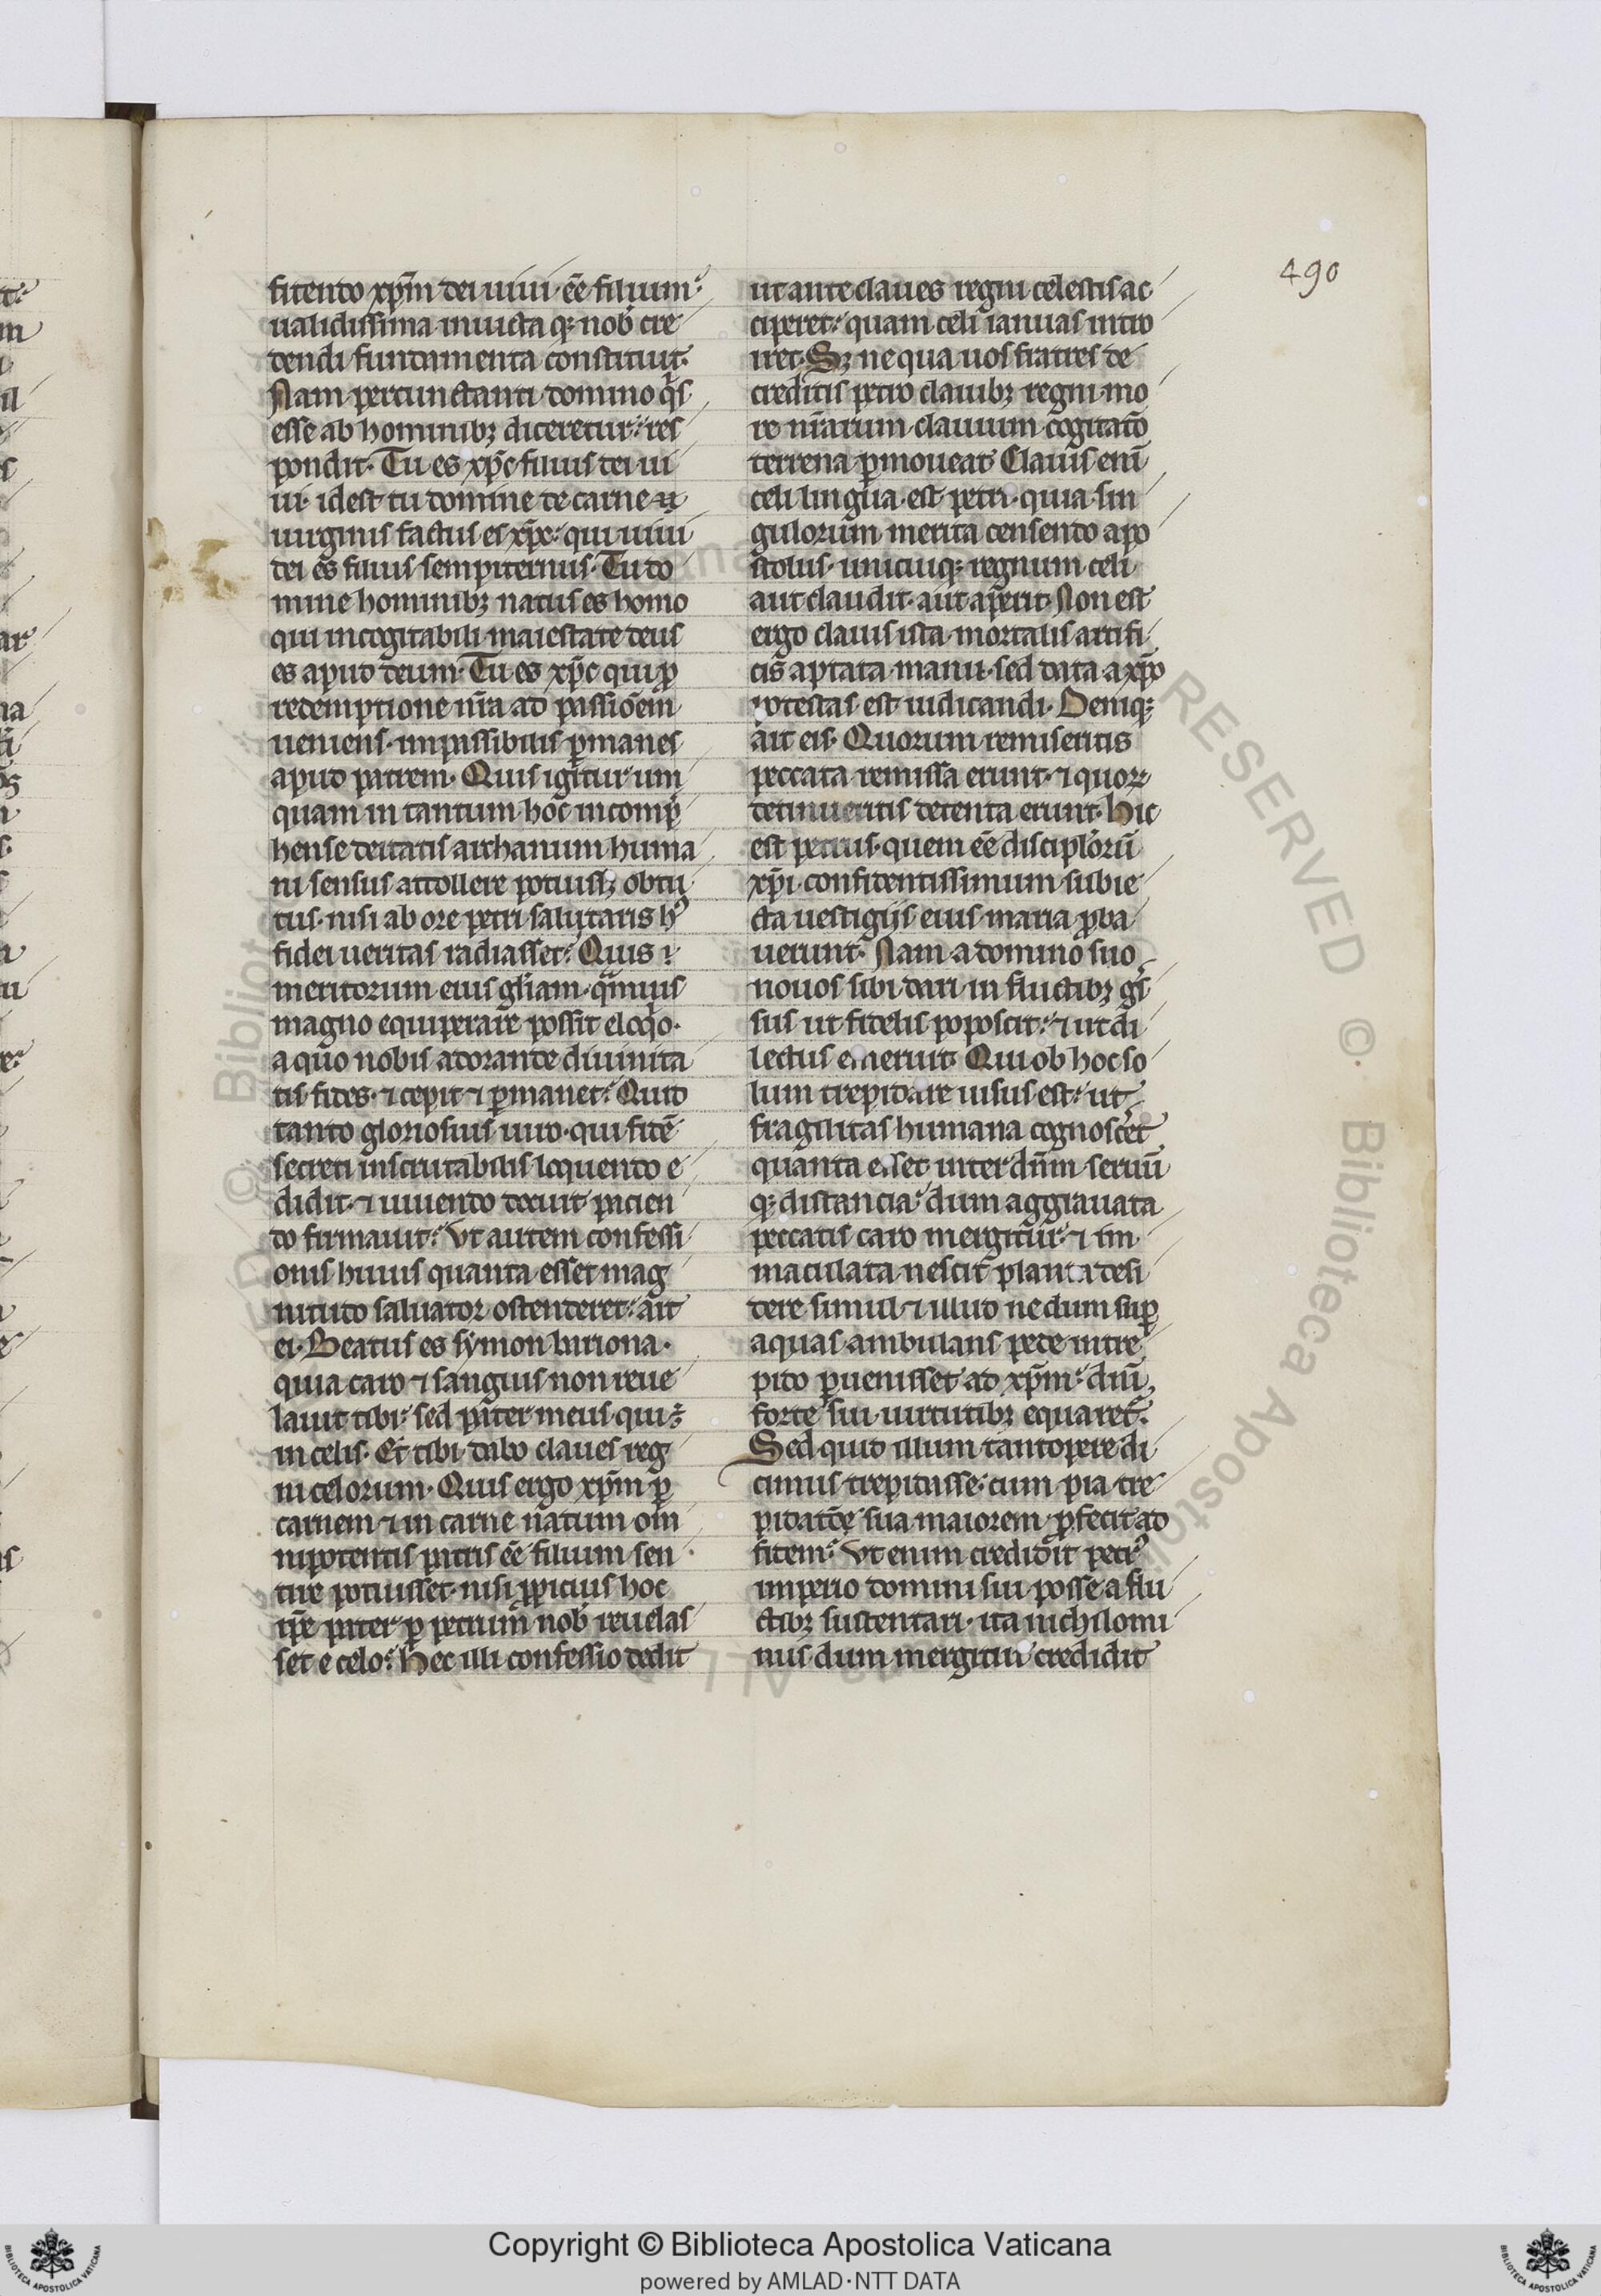 490
fitendo xp̄m dei uiui ēē filium·
ualidissima inuicta q; nob̾ cre
dendi fundamenta constituit·
Nam percunctanti domino q̾s
esse ab hominib; diceretur· res
pondit· Tu es xp̄c filius dei ui
ui· idest tu domine de carne u̾
uirginis factus es xp̄c· qui uiui
dei es filius sempiternus· Tu do
mine hominib; natus es homo
qui incogitabili maiestate deus
es apud deum· Tu es xp̄c qui ꝓ
redemptione nr̄a ad passionem
ueniens· impassibilis ꝑmanes
apud patrem· Quis igitur um
quam in tantum hoc incomp̄
hense deitatis archanum huma
ni sensus attollere potuiss; obtu
tus· nisi ab ore petri salutaris h̾
fidei ueritas radiasset· Quis ⁊
meritorum eius gl̄iam· q̄muis
magno equiperare possit eloq̾o·
a quo nobis adorande diuinita
tis fides· ⁊ cepit ⁊ ꝑmanet· Quid
tanto gloriosius uiro· qui fidē
secreti inscrutabilis loquendo e
didit· ⁊ uiuendo docuit· pacien
do firmauit· Vt autem confessi
onis huius quanta esset mag
nitudo saluator ostenderet· ait
ei· Beatus es symon bariona·
quia caro ⁊ sanguis non reue
lauit tibi· sed pater meus qui ē
in celis· Et tibi dabo claues reg
ni celorum· Quis ergo xp̄m p̄
carnem ⁊ in carne natum om
nipotentis patris ēē filium sen
tire potuisset· nisi ꝓpicius hoc
ip̄e pater ꝑ petrum nob̾ reuelas
set e celo· Hec illi confessio dedit
ut ante claues regni celestis ac
ciperet· quam celi ianuas intro
iret· S; ne qua uos fratres de
creditis petro clauib; regni· mo
re nr̄arum clauium cogitatō
terrena ꝑmoueat· Clauis enī
celi lingua est petri· quia sin
gulorum merita censendo apo
stolus· unicuiq; regnum celi
aut claudit· aut aperit· Non est
ergo clauis ista mortalis artifi
cis aptata manu· sed data a xp̄o
potestas est iudicandi· Deniq;
ait eis· Quorum remiseritis
peccata remissa erunt· ⁊ quoꝝ
detinueritis detenta erunt· Hic
est petrus· quem ēē discipl̾orū
xp̄i confidentissimum subie
cta uestigijs eius maria ꝓba
uerunt· Nam a domino suo
nouos sibi dari in fluctib; g̾s
sus ut fidelis poposcit· ⁊ ut di
lectus emeruit· Qui ob hoc so
lum trepidare uisus est· ut
fragilitas humana cognosc̾et
quanta esset inter dn̄m seruū
q; distancia· dum aggrauata
peccatis caro mergitur· ⁊ im
maculata nescit planta desi
dere simul ⁊ illud ne dum suꝑ
aquas ambulans pede intre
pido ꝑuenisset ad xp̄m· diuī
forte sui uirtutib; equaret·
Sed quid illum tantopere di
cimus trepidasse· cum pia tre
pidatōe sua maiorem ꝓfecit ad
fidem· Vt enim credidit petr̾
imperio domini sui posse a flu
ctib; sustentari· ita nichilomi
nus dum mergitur credidit
Copyright © Biblioteca Apostolica Vaticana
powered by AMLAD·NTT DATA